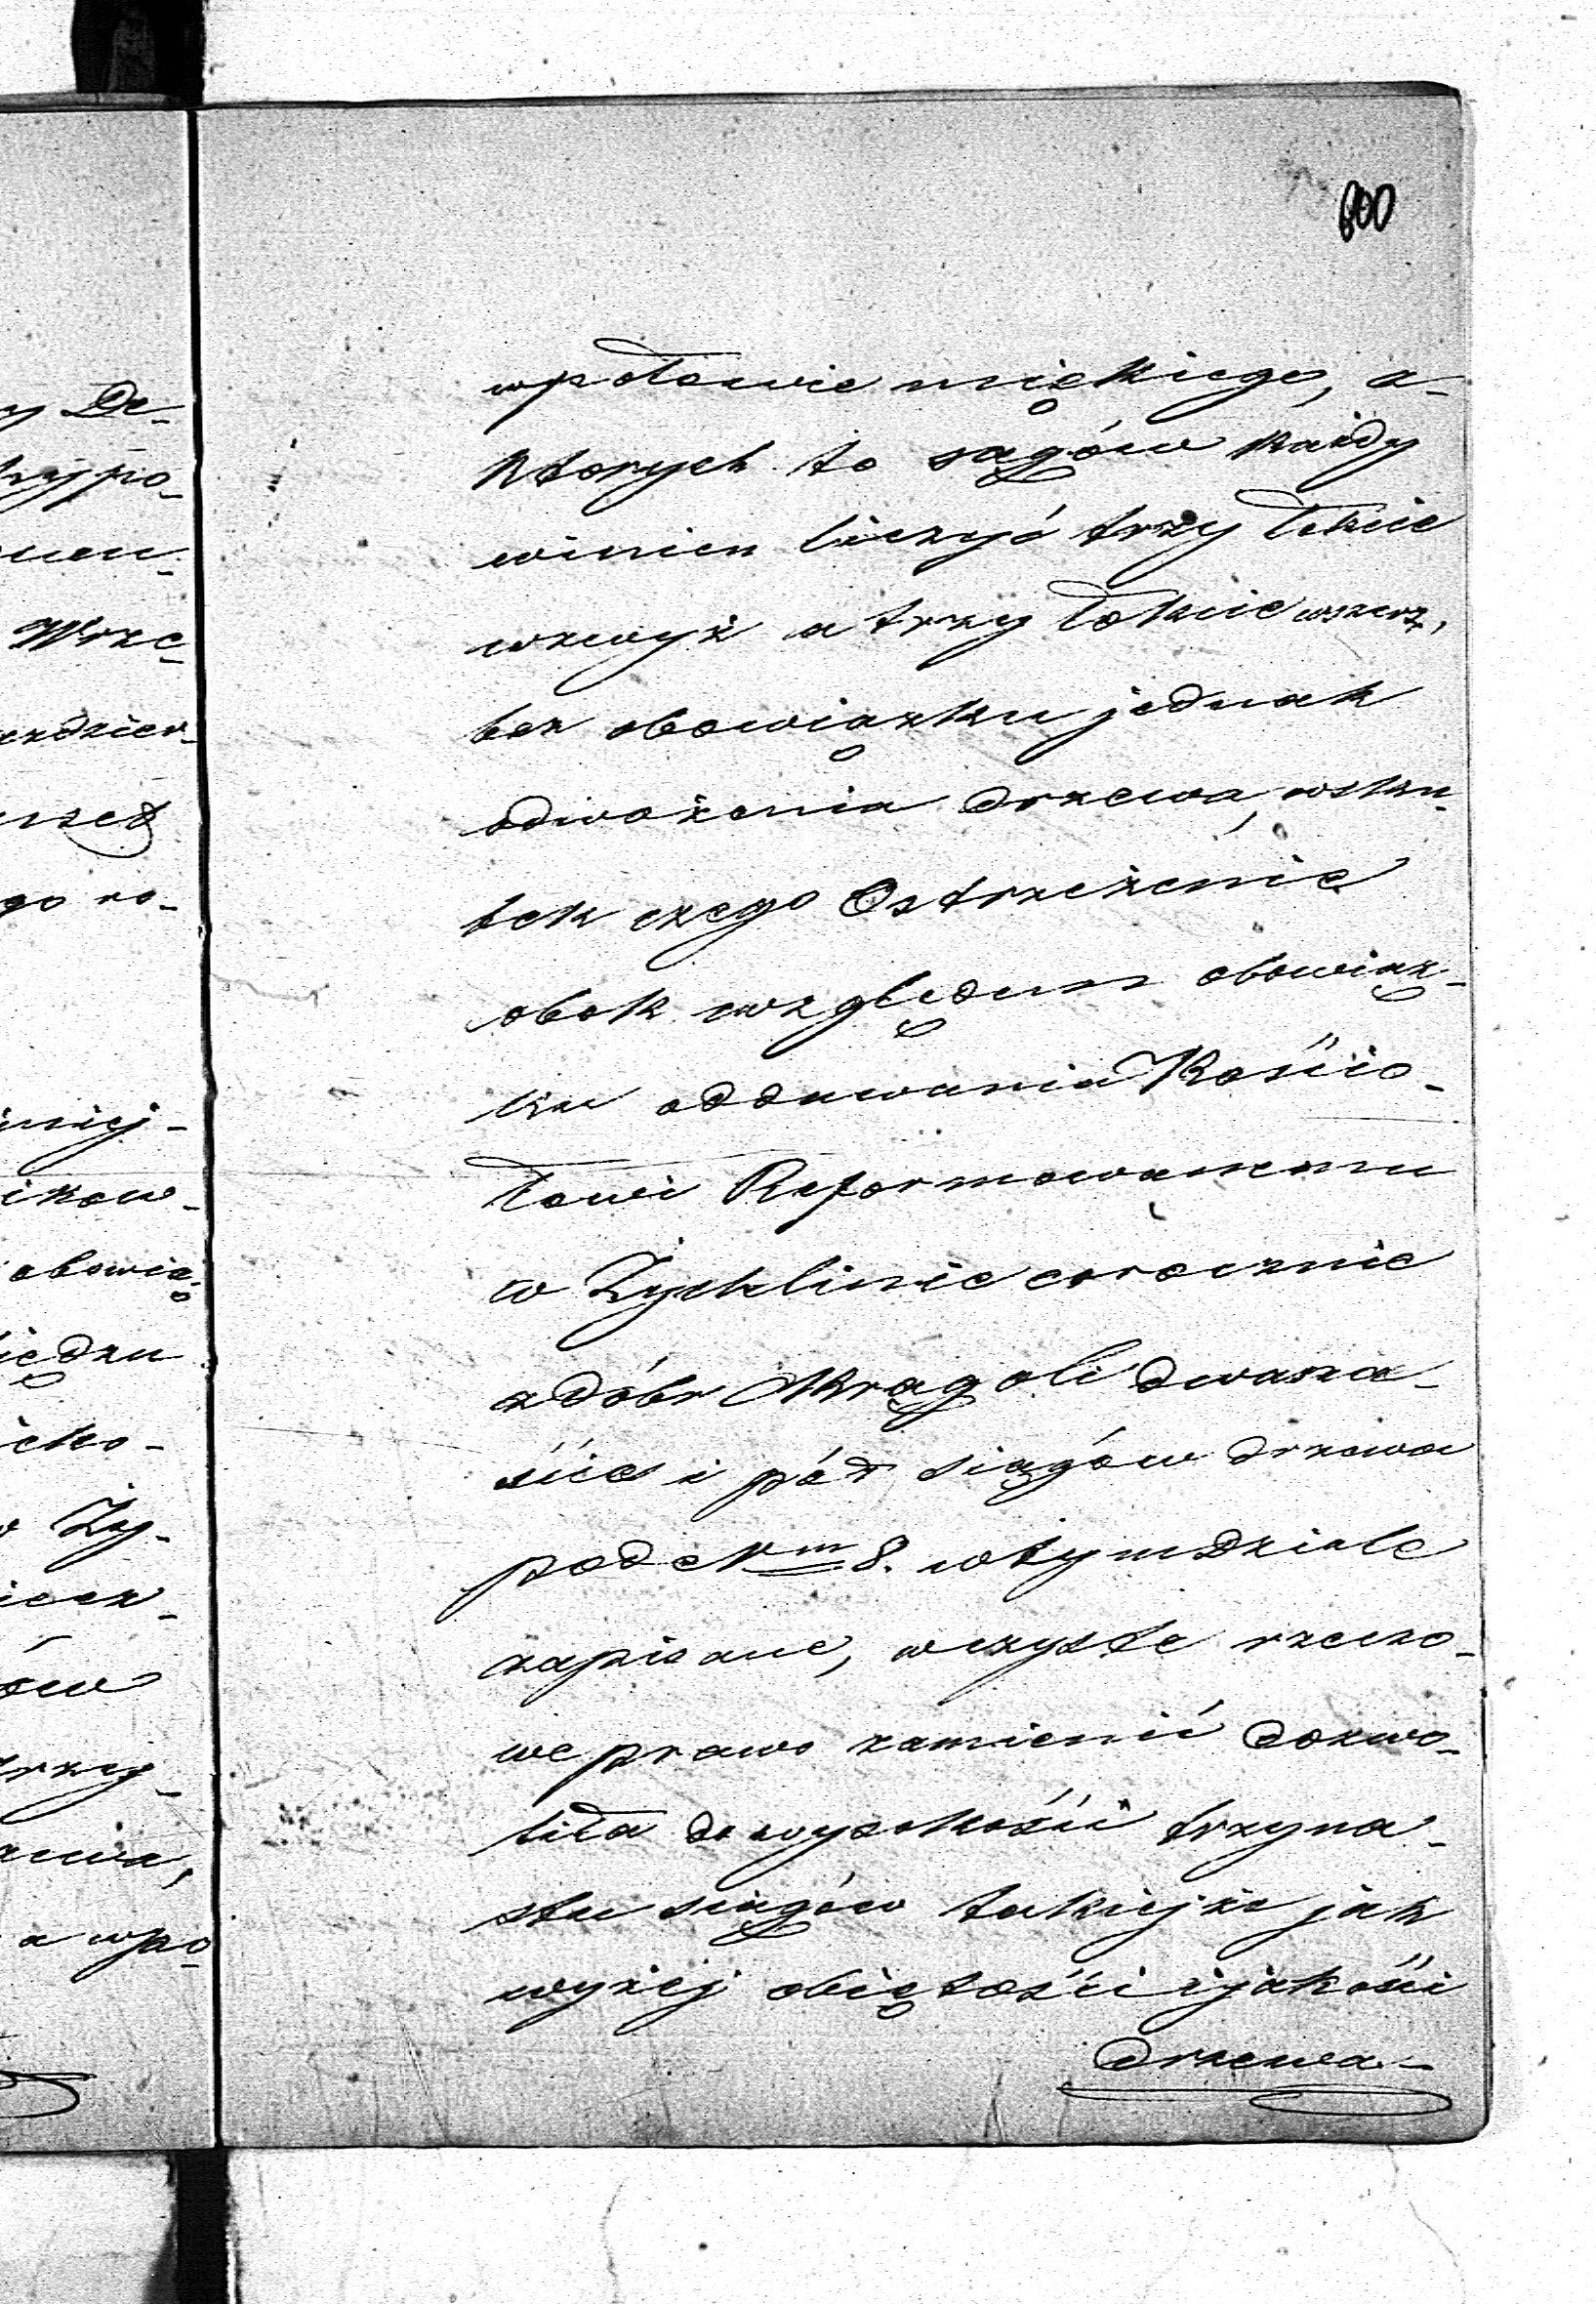 600
wpołowie miękiego, a
ktorych to sągów każdy
winien liczyć trzy łokcie
wzwyż a trzy łokcie wszerz,
bez obowiązku jednak
odwożenia drzewa, wsku-
tek czego Ostrzeżenie
obok względem obowiąz-
ku oddawania Kościo-
łowi Reformowanemu
w Żychlinie corocznie
z dóbr Krągoli dwana-
ście i pół siągów drzewa
pod Nrm 8. w tym dziale
zapisane, w czyste rzeczo-
we prawo zamienić dozwo-
liła do wysokości trzyna-
stu siągów takiejże jak
wyżej objętości i jakości
drzewa